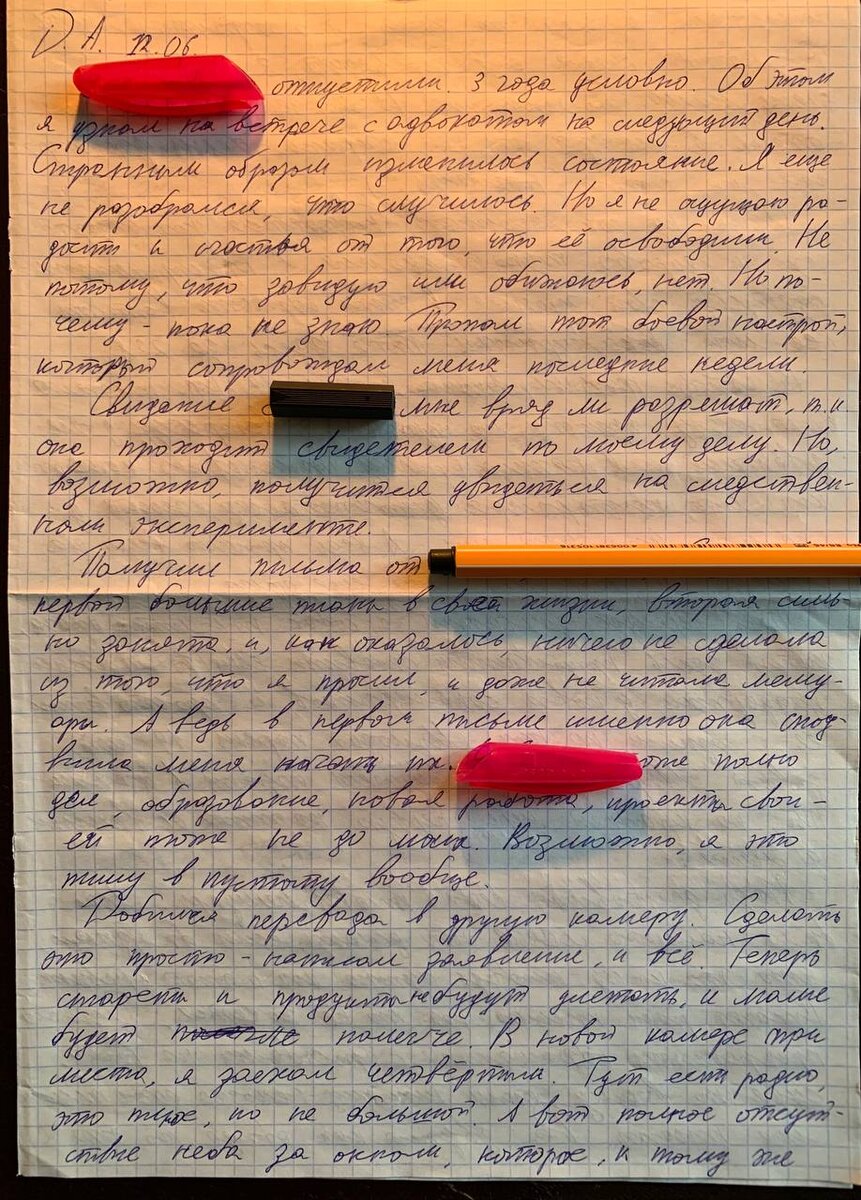 D. A. 12.06.
отпустили. 3 года условно. Об этом
я узнал на встрече с адвокатом на следующий день.
Странным образом изменилось состояние. Я ещё
не разобрался, что случилось. Но я не ощущаю ра-
дости и счастья от того, что её освободили. Не
потому, что завидую или обижаюсь, нет. Но по-
чему - пока не знаю. Пропал тот боевой настрой,
который сопровождал меня последние недели.
Свидание мне вряд ли разрешат, т.к.
она проходит свидетелем по моему делу. Но,
возможно, получится увидеться на следствен-
ном эксперименте.
Получил письма от
первой большие планы в своей жизни, вторая силь-
но занята, и, как оказалось, ничего не сделала
из того, что я просил, и даже не читала мему-
ары. А ведь в первом письме именно она спод-
вигла меня начать их. оже полно
дел, образование, новая работа, проекты свои -
ей тоже не до моих. Возможно, я это
пишу в пустоту вообще.
Добился перевода в другую камеру. Сделать
это просто - написал заявление, и всё. Теперь
сигареты и продукты не будут улетать, и маме
будет полегче. В новой камере три
места, я заехал четвёртым. Тут есть радио,
это плюс, но не большой. А вот полное отсут-
ствие неба за окном, которое, к тому же